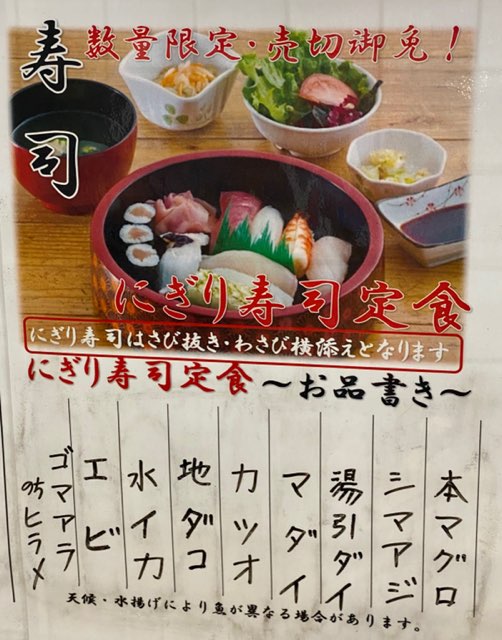 寿司
数量限定・売切御免！
にぎり寿司定食
にぎり寿司はさび抜き・わさび横添えとなります
にぎり寿司定食 〜お品書き〜
本マグロ
シマアジ
湯引ダイ
マダイ
カツオ
地ダコ
水イカ
エビ
ゴマアラ
のちヒラメ
天候・水揚げにより魚が異なる場合があります。